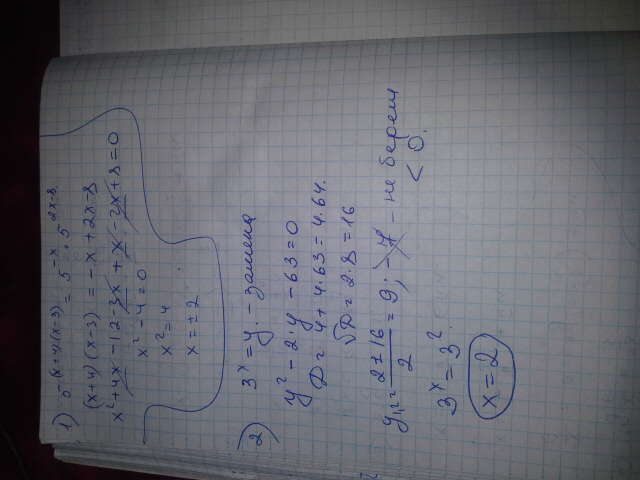 1) 5^(x+4)(x-3) = 5^-x · 5^2x-8
(x+4)(x-3) = -x + 2x-8
x² + 4x - 12 - 3x + x - 2x + 8 = 0
x² - 4 = 0
x² = 4
x = ± 2
2) 3^x = y. - замена
y² - 2·y - 63 = 0
D = 4 + 4·63 = 4·64.
√D = 2·8 = 16
y1,2 = (2 ± 16)/2 = 9; -7 - не берем
< 0.
3^x = 3²
x = 2